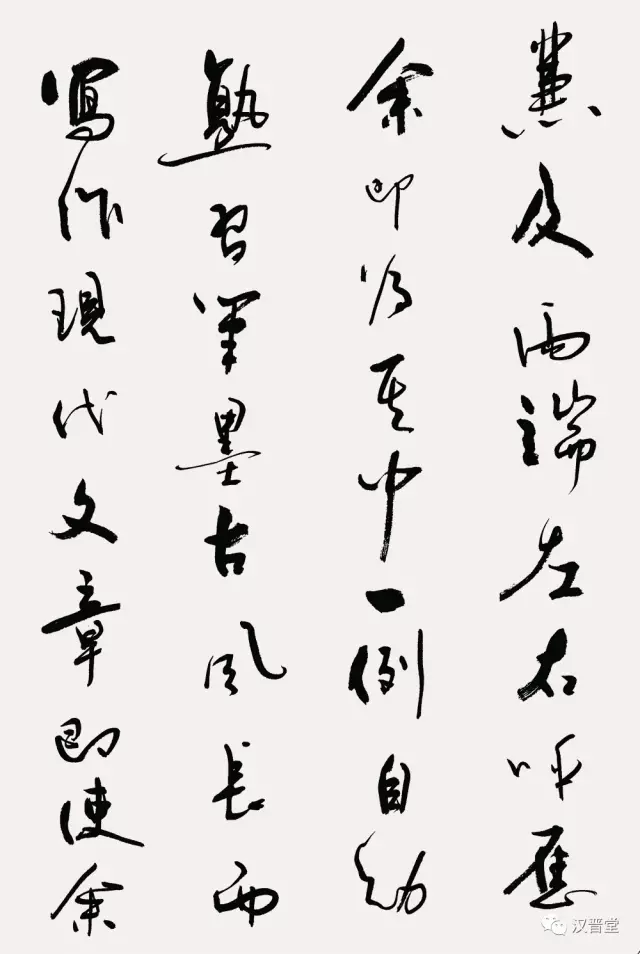 兼及兩端左右呼應
余即為其中一例自幼
熟習筆墨古風長而
寫作現代文章即使余
汉晋堂